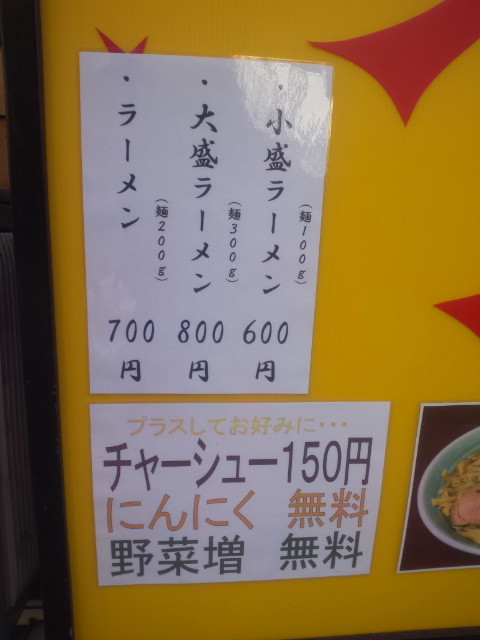 ・小盛ラーメン
(麺100g)
600円
・大盛ラーメン
(麺300g)
800円
・ラーメン
(麺200g)
700円
プラスしてお好みに・・・
チャーシュー150円
にんにく 無料
野菜増 無料